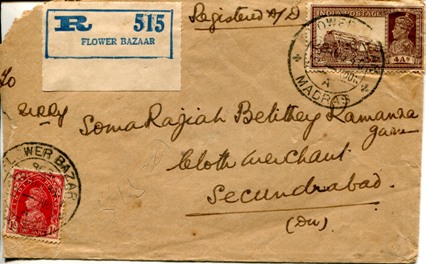 R 515
FLOWER BAZAAR
Registered A/D
INDIA POSTAGE
4As
FLOWER
MADRAS
To
Soma Rajiah Belithey Ramanna
Cloth merchant
Secundrabad.
(Dn)
FLOWER BAZAR